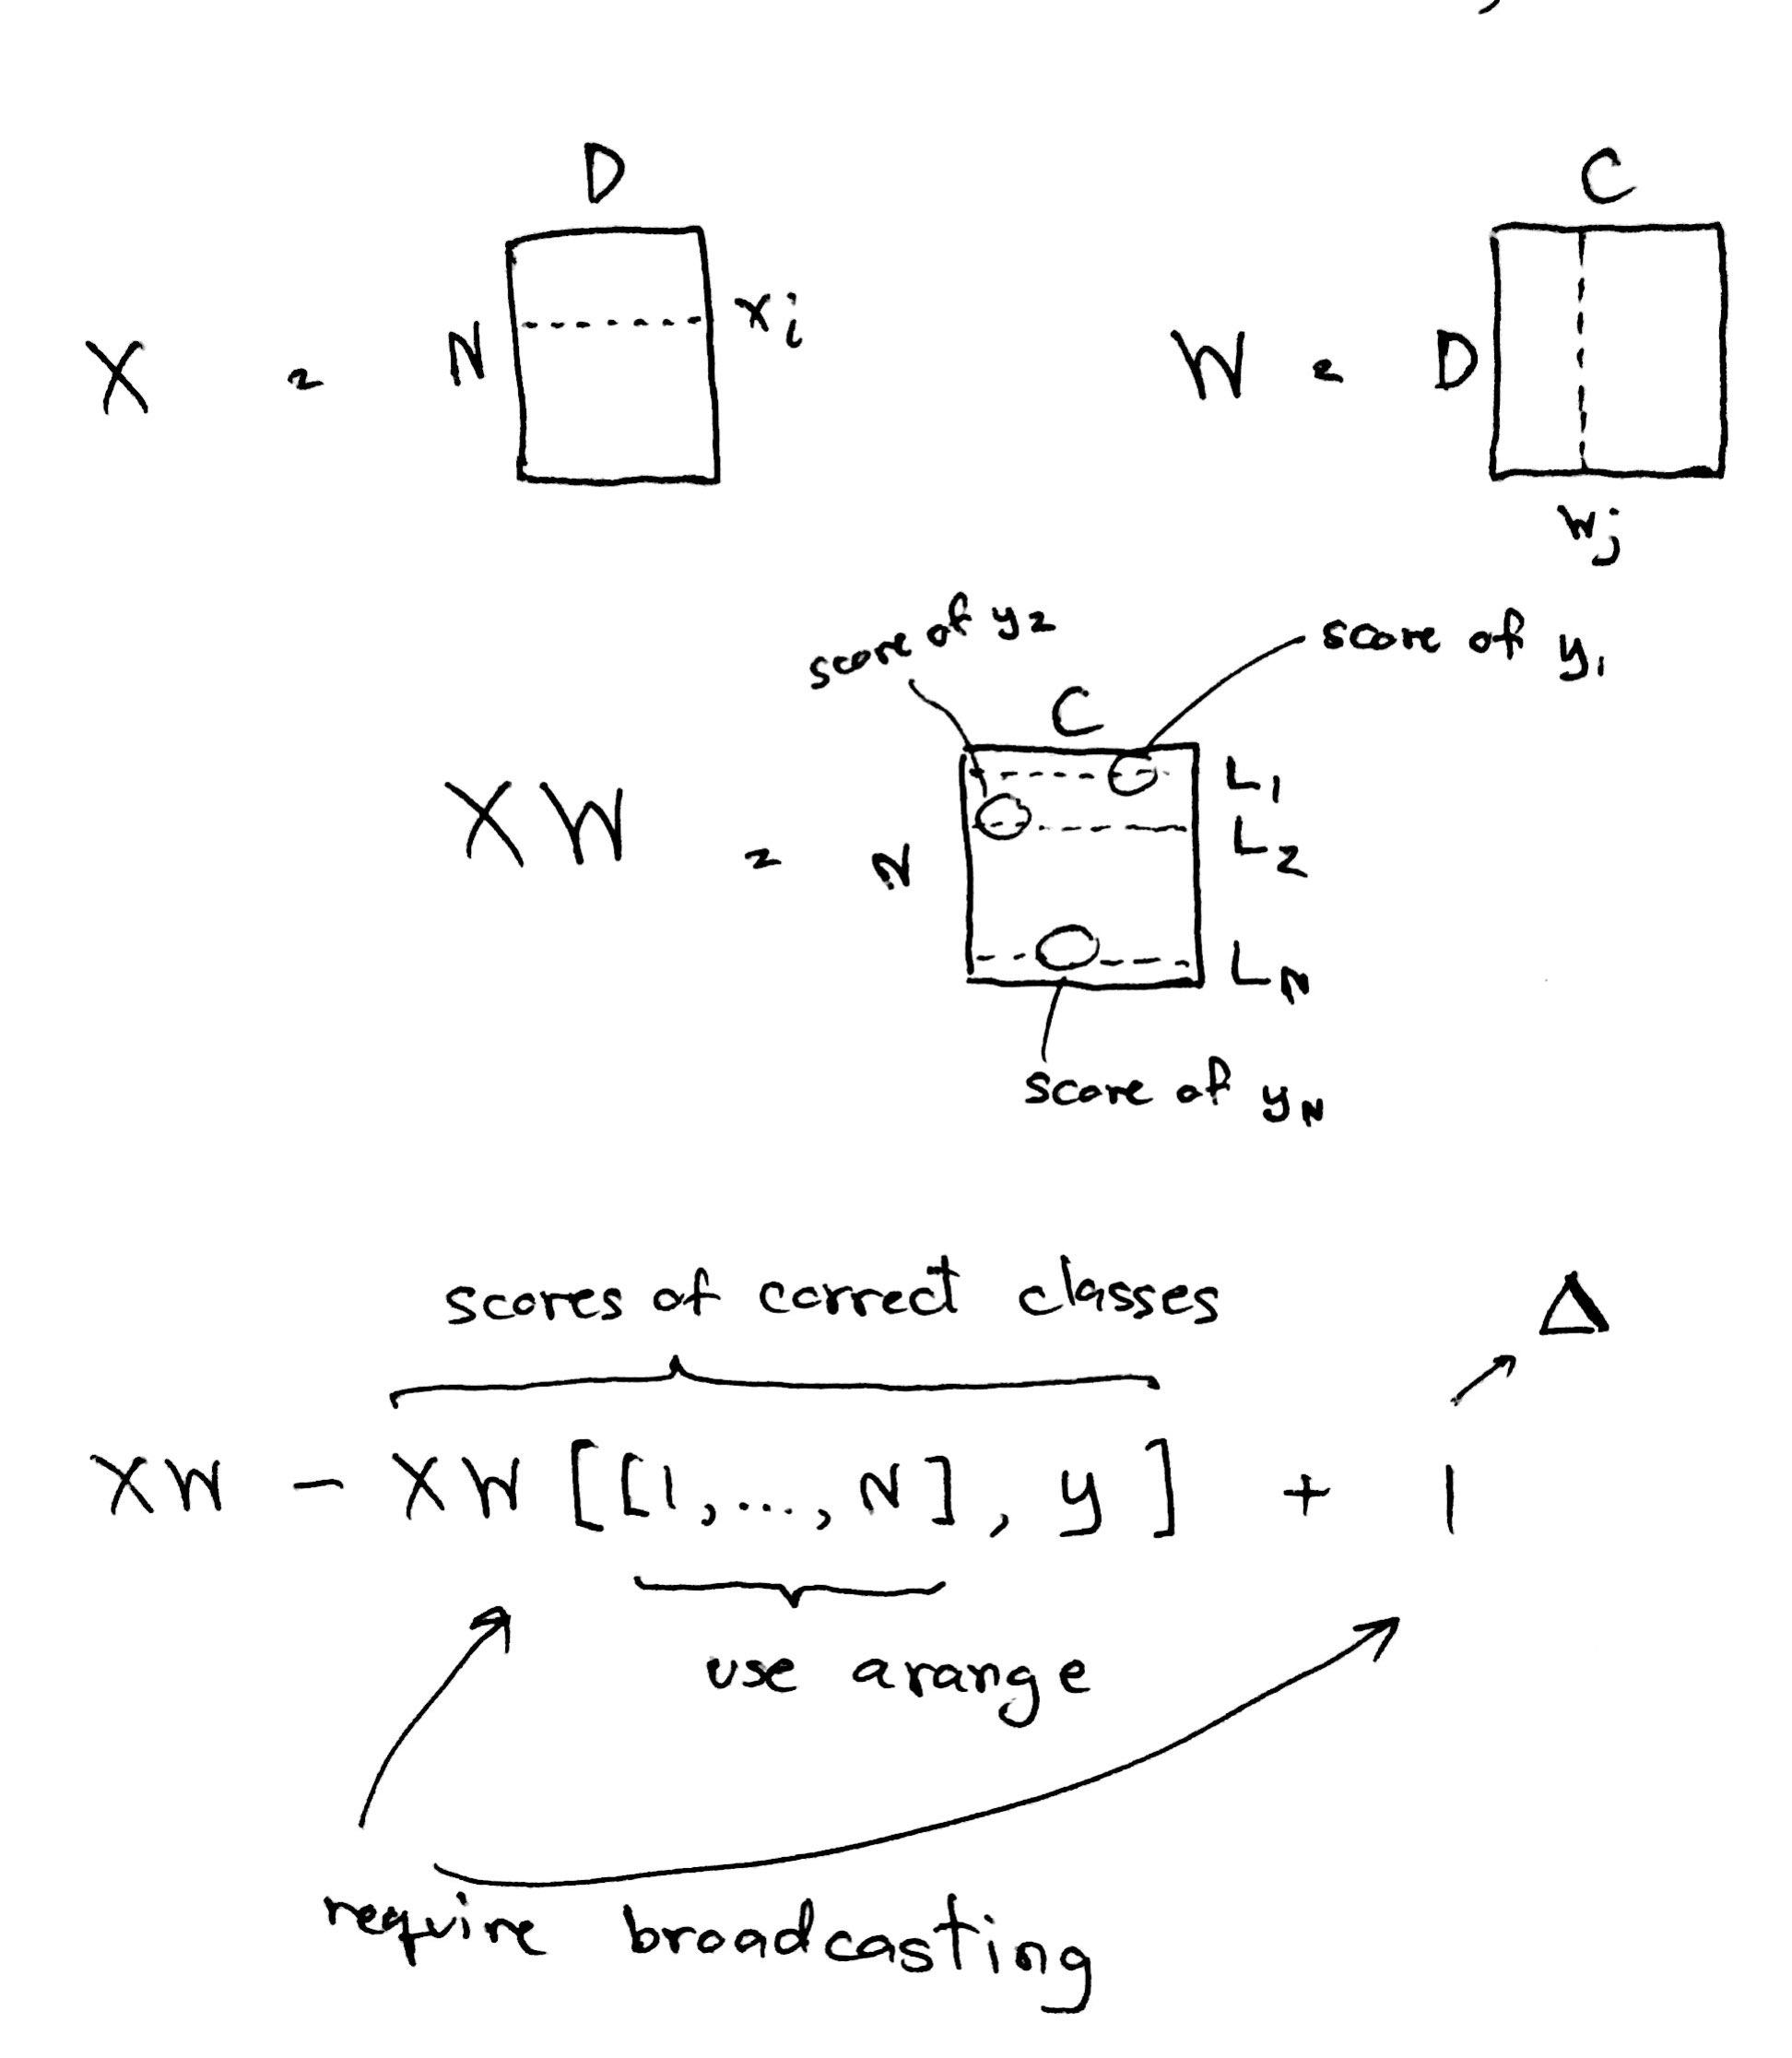 D
C
X = N
x_i
W = D
w_j
score of y_2
score of y_1
C
XW = N
L_1
L_2
L_N
score of y_N
scores of correct classes
Δ
XW - XW [[1, ..., N], y] + 1
use arange
require broadcasting